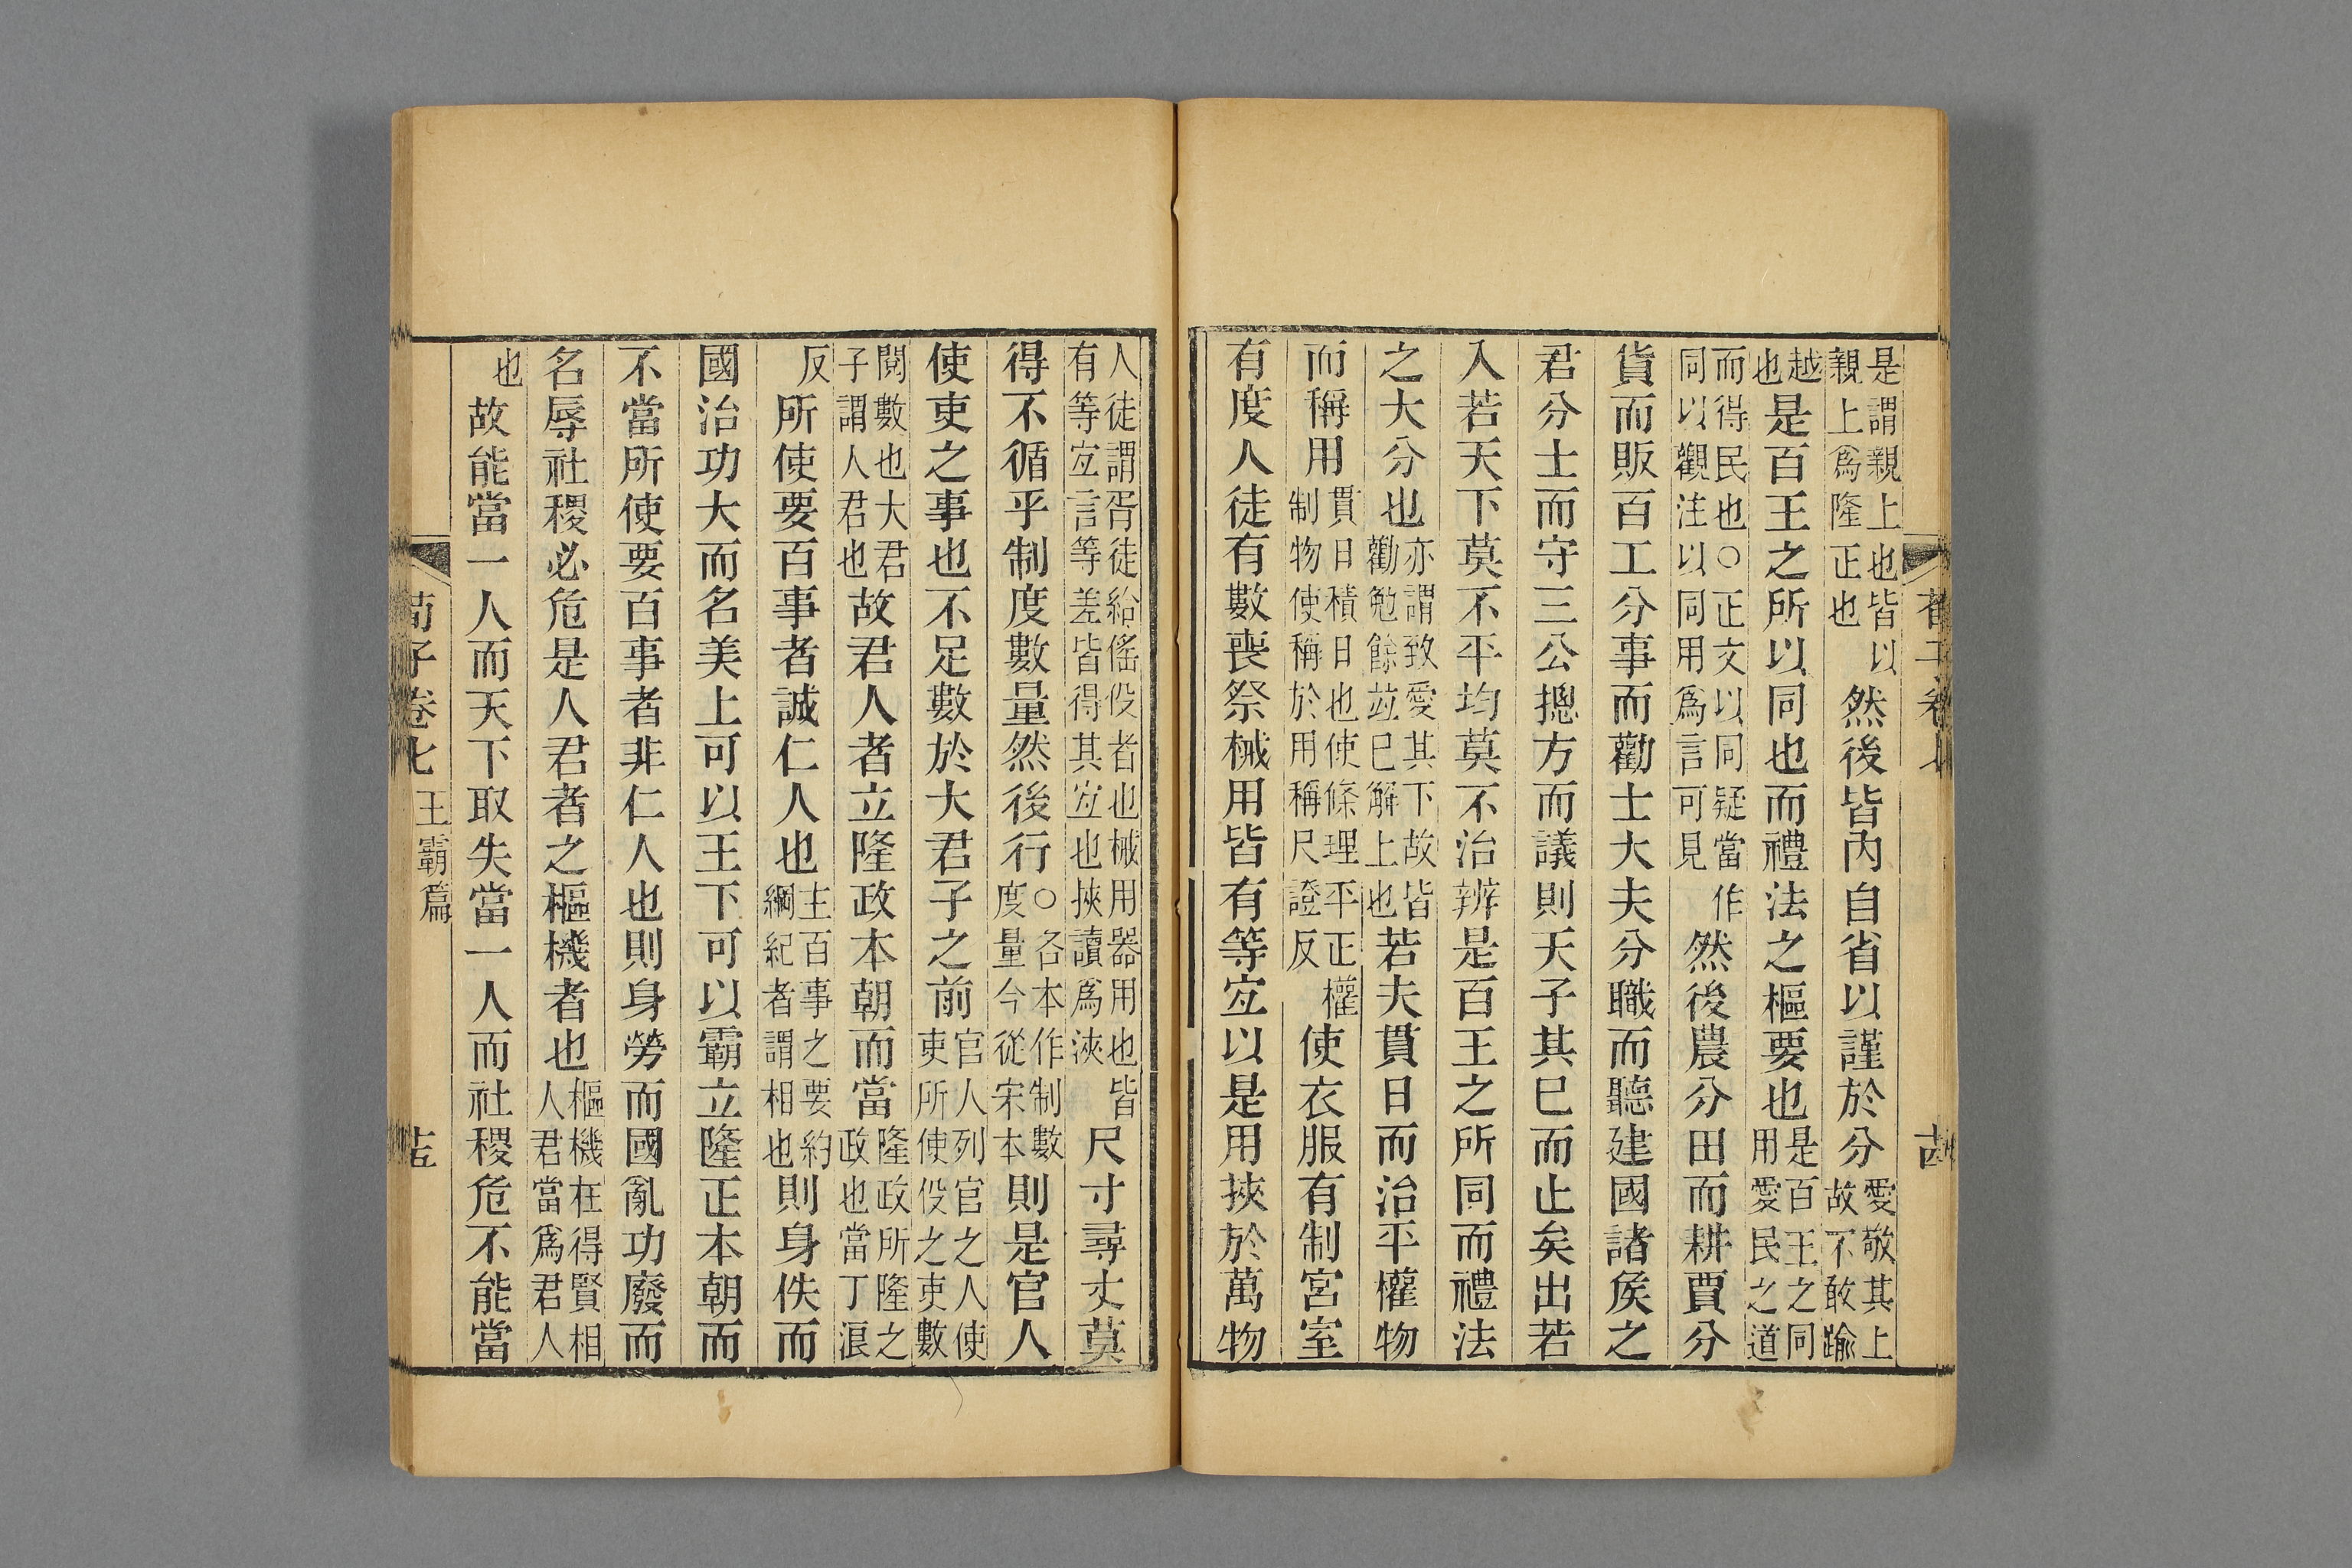 是謂親上也皆以親上爲隆正也然後皆內自省以謹於分愛敬其上故不敢踰
越也是百王之所以同也而禮法之樞要也是百王之同用愛民之道
而得民也○正文以同疑當作同以觀注以同用爲言可見然後農分田而耕賈分
貨而販百工分事而勸士大夫分職而聽建國諸矦之
君分土而守三公摠方而議則天子其巳而止矣出若
入若天下莫不平均莫不治辨是百王之所同而禮法
之大分也亦謂致愛其下故皆勸勉餘竝巳解上也若夫貫日而治平權物
而稱用貫日積日也使條理平正權制物使稱於用稱尺證反使衣服有制宮室
有度人徒有數喪祭械用皆有等宐以是用挾於萬物
人徒謂胥徒給傜役者也械用器用也皆有等宐言等差皆得其宐也挾讀爲浹尺寸尋丈莫
得不循乎制度數量然後行○各本作制數度量今從宋本則是官人
使吏之事也不足數於大君子之前官人列官之人使吏所使役之吏數
閱數也大君子謂人君也故君人者立隆政本朝而當隆政所隆之政也當丁浪
反所使要百事者誠仁人也主百事之要約綱紀者謂相也則身佚而
國治功大而名美上可以王下可以霸立隆正本朝而
不當所使要百事者非仁人也則身勞而國亂功廢而
名辱社稷必危是人君者之樞機者也樞機在得賢相人君當爲君人
也故能當一人而天下取失當一人而社稷危不能當
荀子卷七 王霸篇